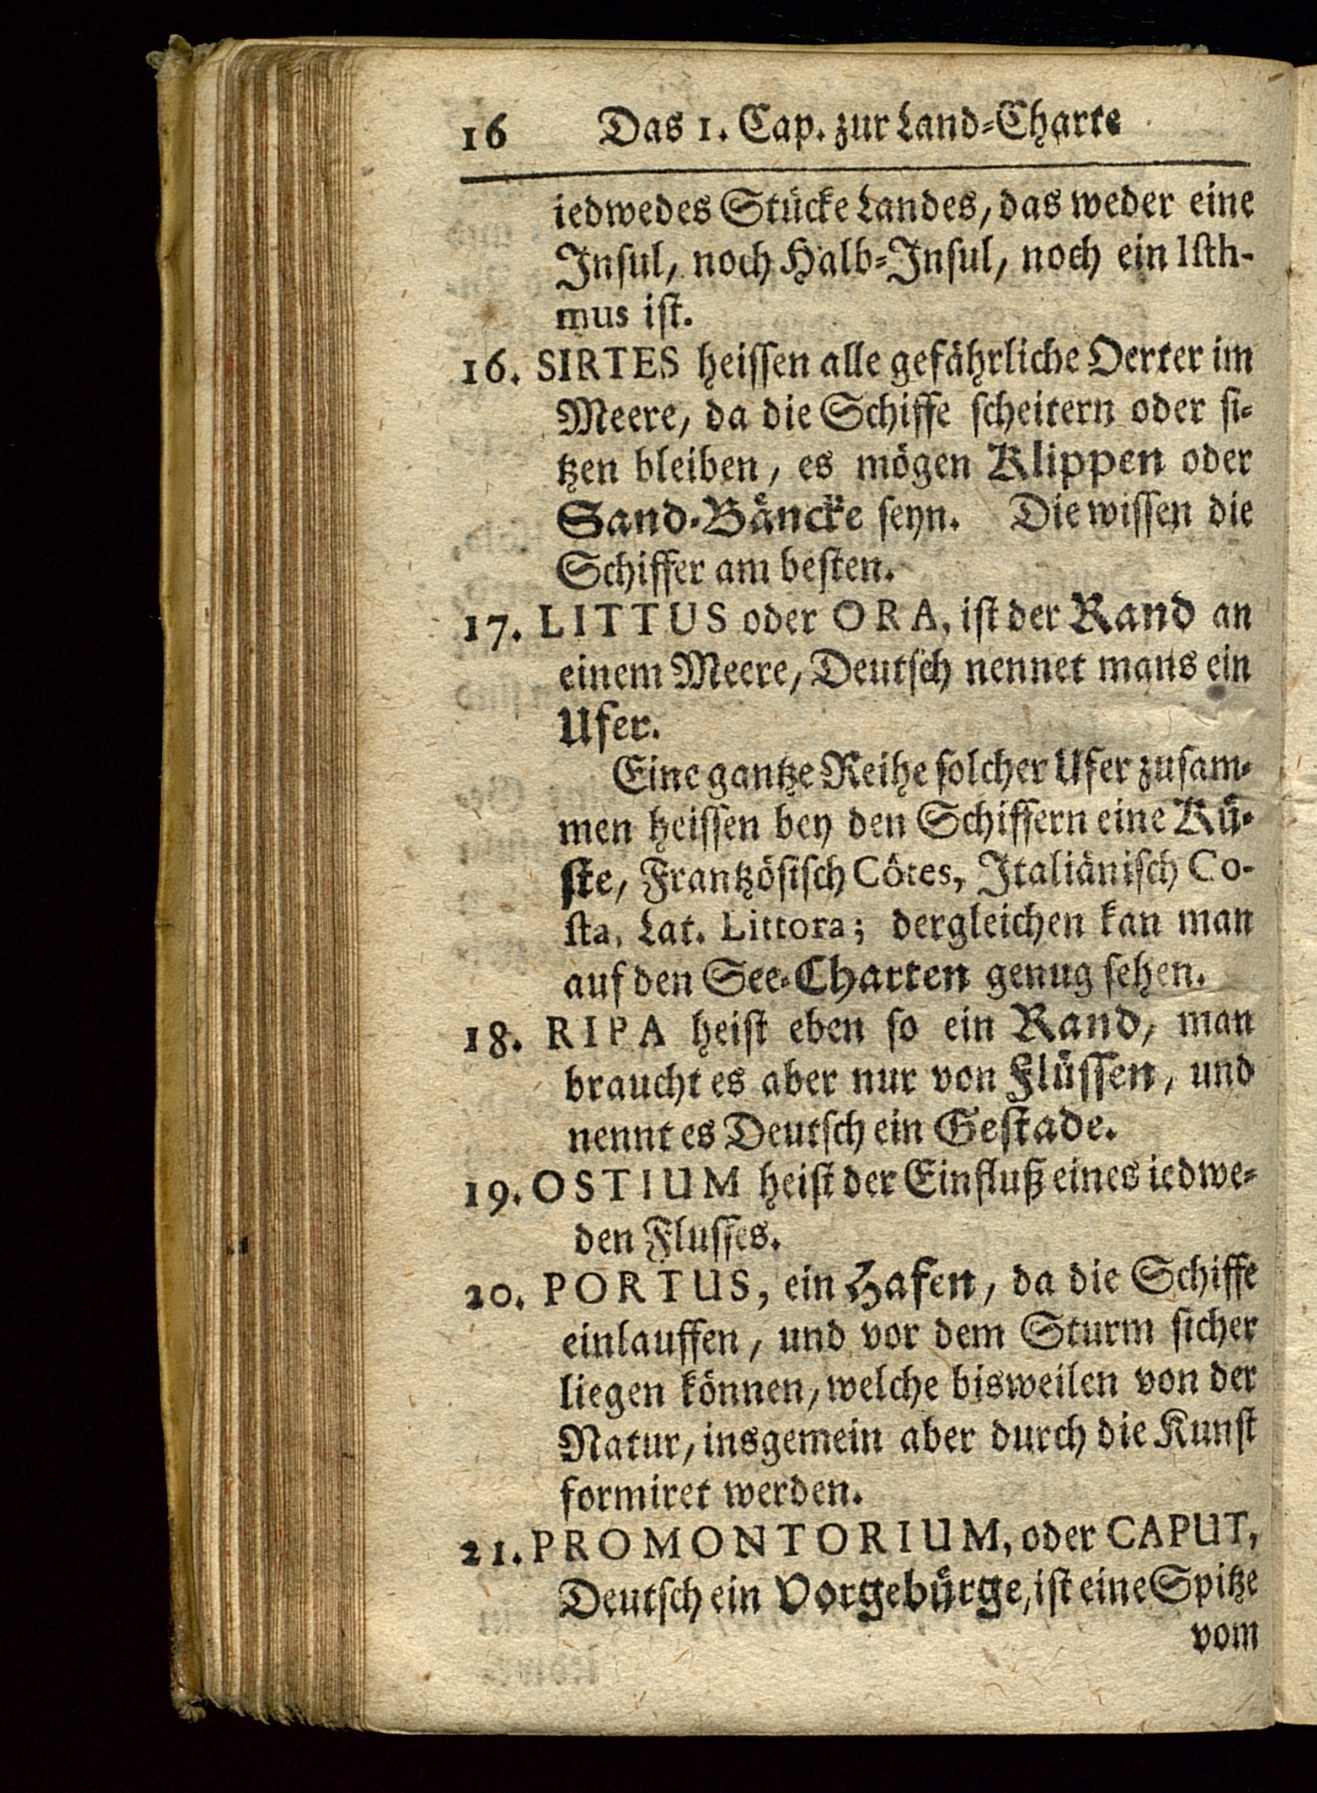 16 Das 1. Cap. zur Land-Charte
iedwedes Stücke Landes, das weder eine
Insul, noch Halb-Insul, noch ein Isth-
mus ist.
16. SIRTES heissen alle gefährliche Oerter im
Meere, da die Schiffe scheitern oder si-
tzen bleiben, es mögen Klippen oder
Sand-Bäncke seyn. Die wissen die
Schiffer am besten.
17. LITTUS oder ORA, ist der Rand an
einem Meere, Deutsch nennet mans ein
Ufer.
Eine gantze Reihe solcher Ufer zusam-
men heissen bey den Schiffern eine Kü-
ste, Frantzösisch Côtes, Italiänisch Co-
sta, Lat. Littora; dergleichen kan man
auf den See-Charten genug sehen.
18. RIPA heist eben so ein Rand, man
braucht es aber nur von Flüssen, und
nennt es Deutsch ein Gestade.
19. OSTIUM heist der Einfluß eines iedwe-
den Flusses.
20. PORTUS, ein Hafen, da die Schiffe
einlauffen, und vor dem Sturm sicher
liegen können, welche bisweilen von der
Natur, insgemein aber durch die Kunst
formiret werden.
21. PROMONTORIUM, oder CAPUT,
Deutsch ein Vorgebürge, ist eine Spitze
vom